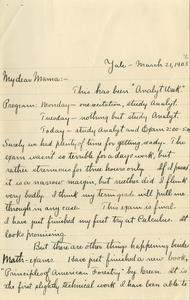 Yale - March 23, 1905
My dear Mama:-
This has been "Analyt Week."
Program: Monday - one recitation, study Analyt.
Tuesday - nothing but study Analyt.
Today - study Analyt and Exam 2:00-5:00
Surely we had plenty of time for getting ready. The
exam wasn't so terrible for a day's work, but
rather strenuous for three hours only. If I passed
it is a narrow margin, but neither did I flunk
very badly. I think my term grade will pull me
through in any case. The exam is final.
I have just finished my first try at Calculus. It
looks promising.
But there are other things happening beside
Math-exams. I have just finished a new book,
"Principles of American Forestry" by Green. It is
the first slightly technical work I have been able to